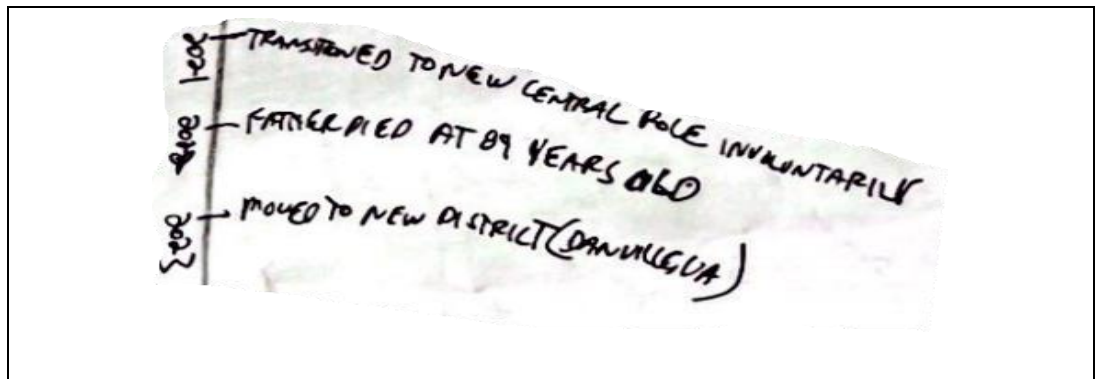 2021 TRANSITIONED TO NEW CENTRAL ROLE INVOLUNTARILY
FATHER DIED AT 89 YEARS OLD
2023 MOVED TO NEW DISTRICT (DANVILLE, VA)